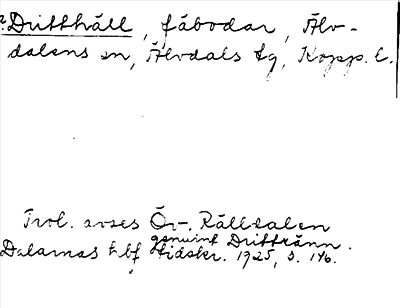 Dritthåll, fäbodar, Älv-
dalens sn, Älvdals tg, Kopp. l.
Trol. avses Öv. Rälldalen
genuint Drittränn.
Dalarnas hbf tidskr. 1925, s. 146.